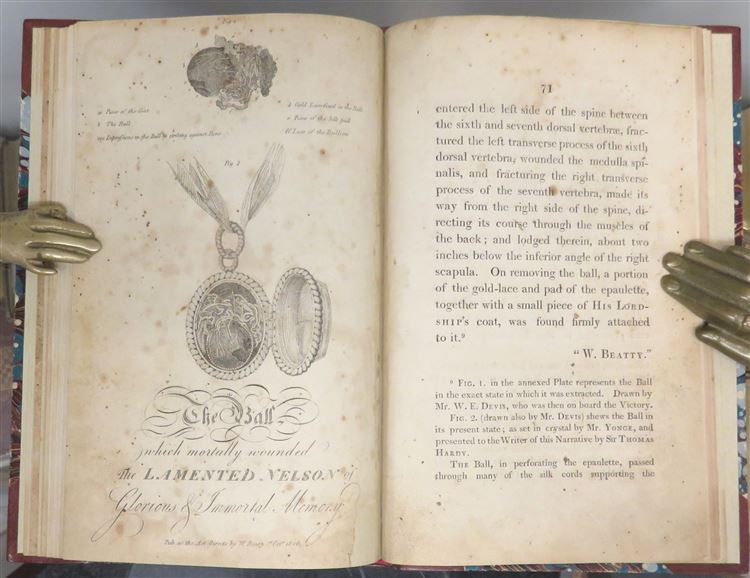 Fig 1
a Piece of the Coat
b The Ball
d Gold Lace fixed in the Ball
e Piece of the Silk pad
Lace of the Bullion
Fig. 2
The Ball
which mortally wounded
The LAMENTED NELSON of
Glorious & Immortal Memory
Pub. as the Act directs by W. Beatty
71
entered the left side of the spine between
the sixth and seventh dorsal vertebræ, frac-
tured the left transverse process of the sixth
dorsal vertebra, wounded the medulla spi-
nalis, and fracturing the right transverse
process of the seventh vertebra, made its
way from the right side of the spine, di-
recting its course through the muscles of
the back; and lodged therein, about two
inches below the inferior angle of the right
scapula. On removing the ball, a portion
of the gold-lace and pad of the epaulette,
together with a small piece of HIS LORD-
SHIP'S coat, was found firmly attached
to it.⁹
"W. BEATTY."
⁹ FIG. 1. in the annexed Plate represents the Ball
in the exact state in which it was extracted. Drawn by
Mr. W. E. DEVIS, who was then on board the Victory.
FIG. 2. (drawn also by Mr. DEVIS) shews the Ball in
its present state; as set in crystal by Mr. YONGE, and
presented to the Writer of this Narrative by Sir THOMAS
HARDY.
THE Ball, in perforating the epaulette, passed
through many of the silk cords supporting the